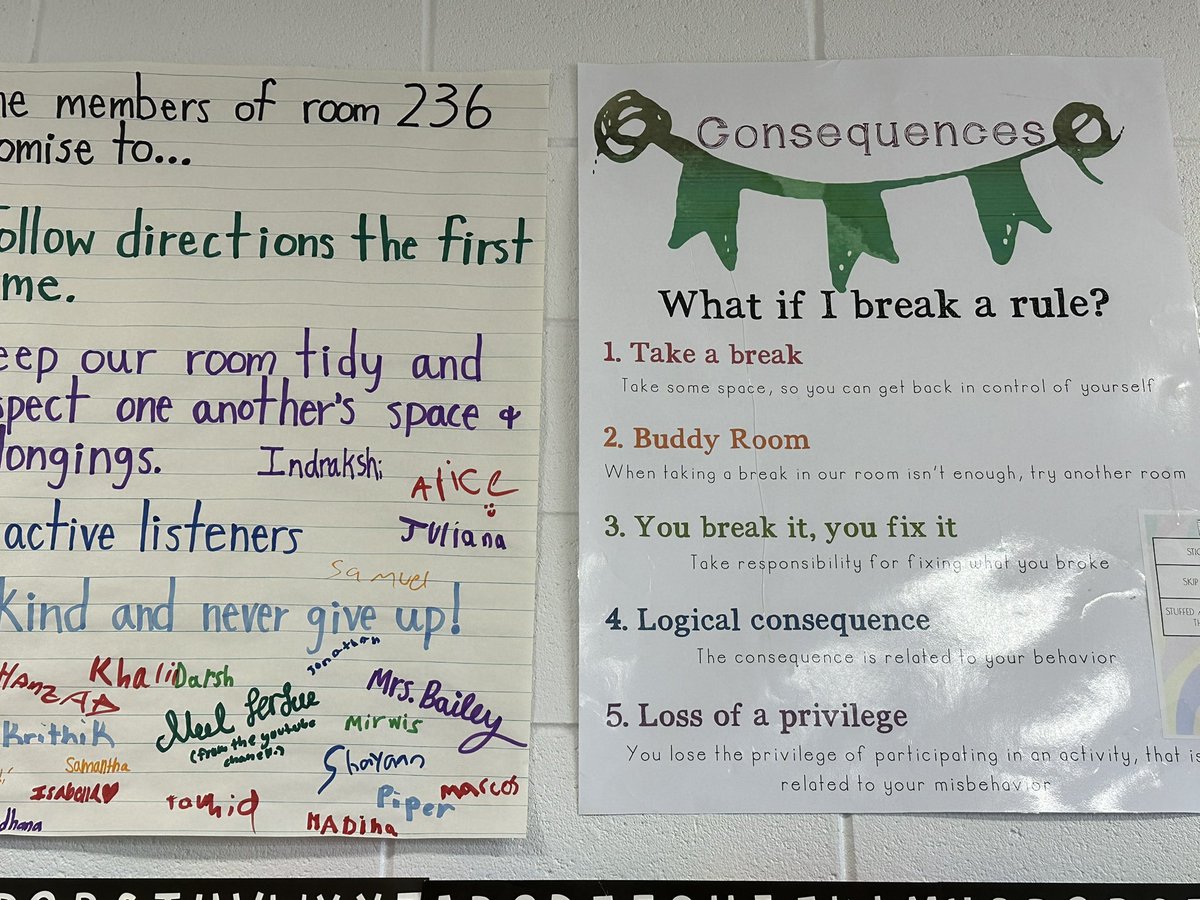 he members of room 236
omise to...
ollow directions the first
me.
eep our room tidy and
spect one another's space &
longings.
active listeners
Kind and never give up!
Indrakshi
Alice
Juliana
Samuel
Jonathan
Hamzad
Khalid
Darsh
Mrs. Bailey
(from the youtube
channel.)
Mirwis
Krithik
Shayann
Samantha
Isabella
Marcos
Piper
Tawhid
Madiha
dhana
Consequences
What if I break a rule?
1. Take a break
Take some space, so you can get back in control of yourself
2. Buddy Room
When taking a break in our room isn't enough, try another room
3. You break it, you fix it
Take responsibility for fixing what you broke
4. Logical consequence
The consequence is related to your behavior
5. Loss of a privilege
You lose the privilege of participating in an activity, that is
related to your misbehavior
STIC
SKIP
STUFFED
TH